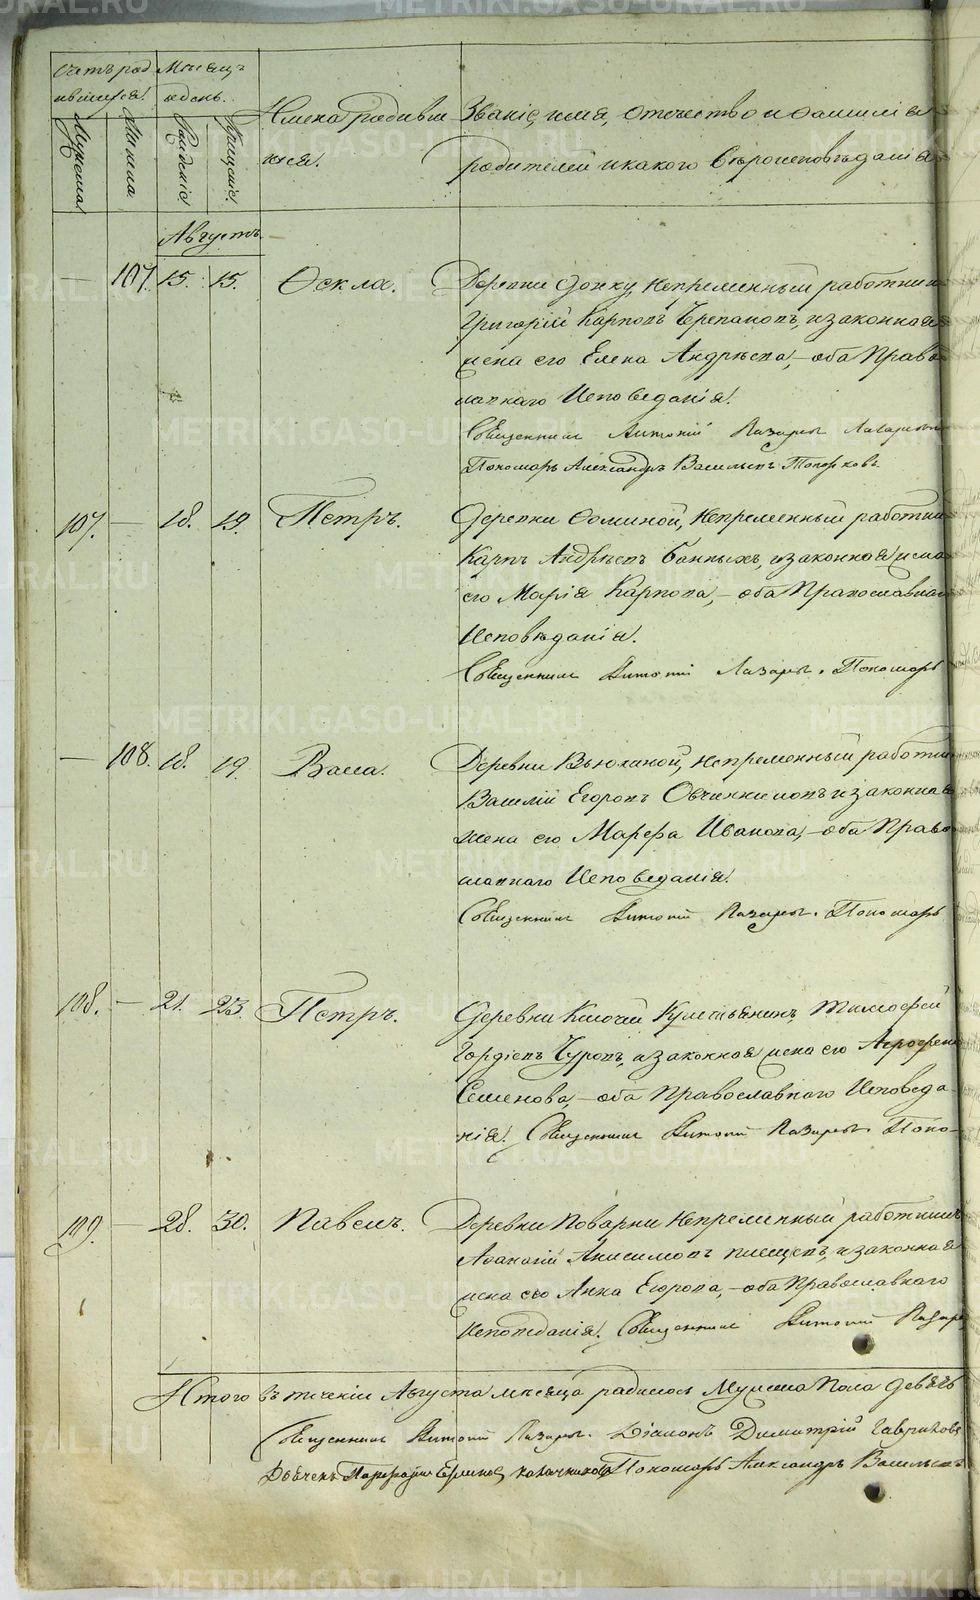 Счетъ род Мѣсяцъ
ившихся. и день.
Мужеска Женска Рожденіе Крещеніе.
Имена родивш Званіе, имя, отчество и фамилія
ихся. родителей и какого Вѣроисповѣданія
Августъ.
— 107. 15. 15. Ѳекла. Деревни Непременный работник
Григорій Карповъ Черепановъ, и законная
жена его Елена Андрѣева, — оба Право
славнаго Исповѣданія.
Священникъ Антоній Лазаревъ
Пономарь Александръ Васильевъ Топорковъ
107. — 18. 19. Петръ. Деревни Ѳоминой, Непременный работни
Карпъ Андрѣевъ Банныхъ, и законная жена
его Марія Карпова, — оба Православнаго
Исповѣданія.
Священникъ Антоній Лазаревъ. Пономарь
— 108. 18. 19. Васса. Деревни Вьюхиной, Непременный работни
Василій Егоровъ Овчинниковъ и законная
жена его Марѳа Иванова, — оба Право
славнаго Исповеданія.
Священникъ Антоній Лазаревъ. Пономарь
108. — 21. 23. Петръ. Деревни Ключи Крестьянинъ, Тимоѳей
Гордѣевъ Чуровъ, и законная жена его Агрофена
Семенова, — оба Православнаго Исповеда-
нія. Священникъ Антоній Лазаревъ. Поно-
109. — 28. 30. Павелъ. Деревни Поварни Непременный работникъ
Аѳанасій Анисимовъ и законная
жена его Анна Егорова, — оба Православнаго
Исповеданія. Священникъ Антоній Лазаре
Итого въ теченіи Августа месяца родилось Мужеска Пола девять
Священникъ Антоній Лазаревъ. Діаконъ Димитрій Гавриловъ
Пономарь Александръ Васильевъ
METRIKI.GASO-URAL.RU